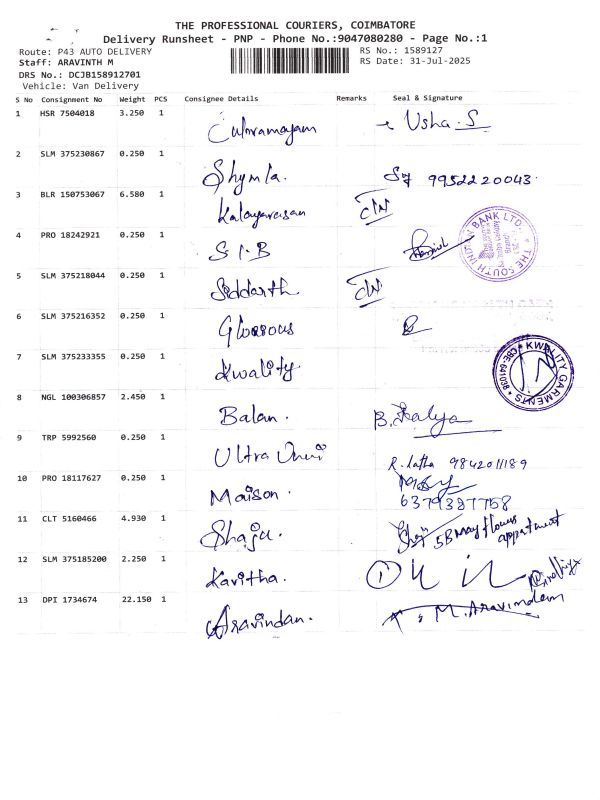 THE PROFESSIONAL COURIERS, COIMBATORE
Delivery Runsheet - PNP - Phone No.:9047080280 - Page No.:1
Route: P43 AUTO DELIVERY RS No.: 1589127
Staff: ARAVINTH M RS Date: 31-Jul-2025
DRS No.: DCJB158912701
Vehicle: Van Delivery
S No Consignment No Weight PCS Consignee Details Remarks Seal & Signature
1 HSR 7504018 3.250 1 Usha.S
2 SLM 375230867 0.250 1 Shymla. 9952220043
3 BLR 150753067 6.580 1 Kalayarasan
4 PRO 18242921 0.250 1 S I B THE SOUTH INDIAN BANK LTD.
5 SLM 375218044 0.250 1 Siddarth
6 SLM 375216352 0.250 1 Glorrous
7 SLM 375233355 0.250 1 Kwality KWALITY GARMENTS CBE-641038
8 NGL 100306857 2.450 1 Balan.
9 TRP 5992560 0.250 1 Ultra R. latha 9842011189
10 PRO 18117627 0.250 1 Maison. 6379387758
11 CLT 5160466 4.930 1 Shaju. 5B Mayflower appartment
12 SLM 375185200 2.250 1 Kavitha.
13 DPI 1734674 22.150 1 Aravindan. M. Aravindan